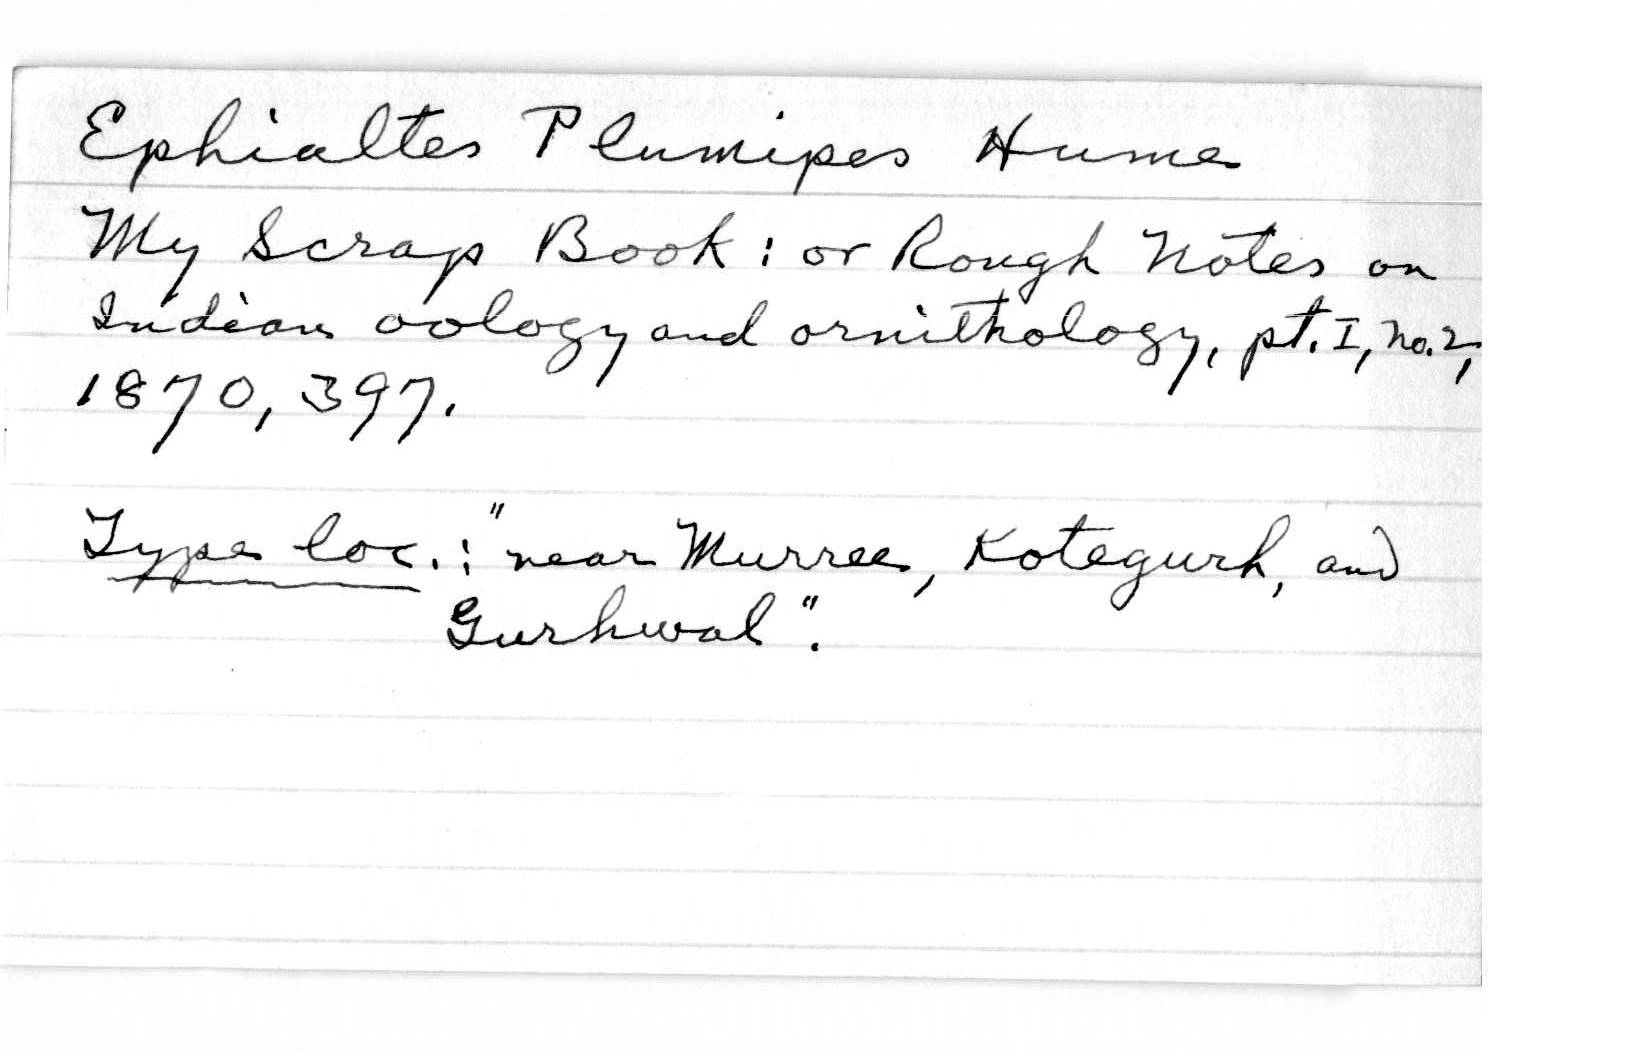 Ephialtes Plumipes Hume
My Scrap Book: or Rough Notes on
Indian oology and ornithology, pt. I, no. 2,
1870, 397.
Type loc.: "near Murree, Kotegurh, and
Gurhwal".